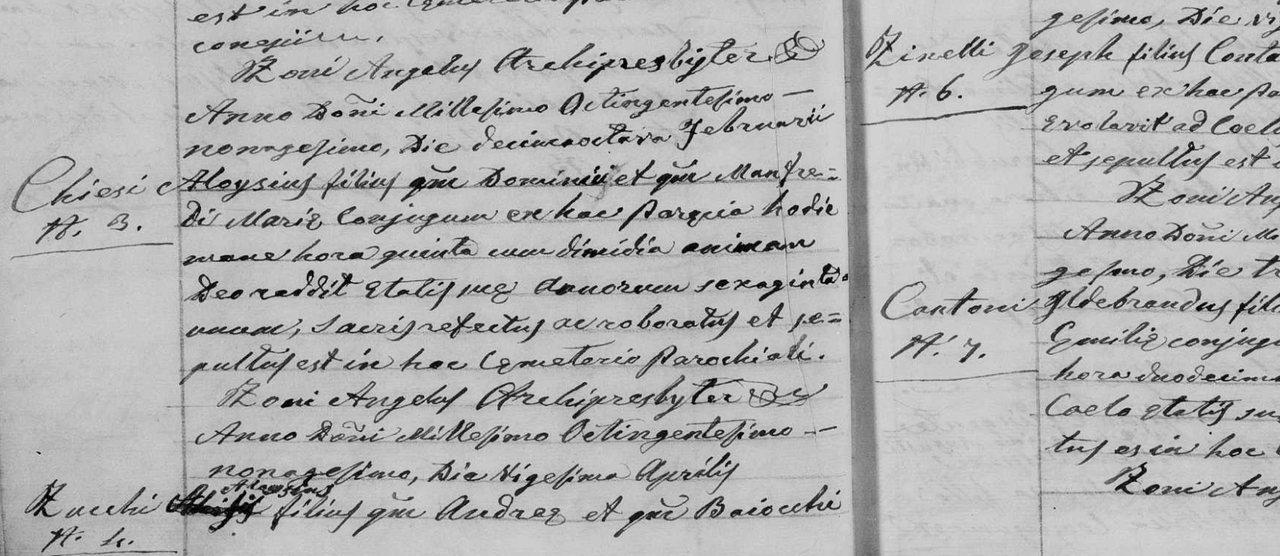 est in hoc Cęmeterio
conspicuo.
Zoni Angelus Archipresbyter
Anno Doñi Millesimo Octingentesimo —
nonagesimo, Die decimaoctava Februarii
Chiesi Aloysius filius qm̃ Dominici et qm̃ Manfre=
N. 3. di Marię Conjugum ex hac Parœcia hodie
mane hora quinta cum dimidia animam
Deo reddit ętatis suę annorum sexaginta
unum, sacris refectus ac roboratus et se=
pultus est in hoc Cęmeterio Parochiali.
Zoni Angelus Archipresbyter
Anno Doñi Millesimo Octingentesimo —
nonagesimo, Die Vigesima Aprilis
Aloysius
Zucchi filius qm̃ Andreę et qm̃ Baiocchi
N. 4.
gesimo, Die
Zinelli Joseph filius
N. 6. gum ex hac
evolavit ad Coel
et sepultus est
Zoni An
Anno Doñi M
gesimo, Die
Cantoni Ildebrandus fili
N. 7. Emilię conjugu
hora duodecima
Coelo ętatis su
tus es in hoc
Zoni An